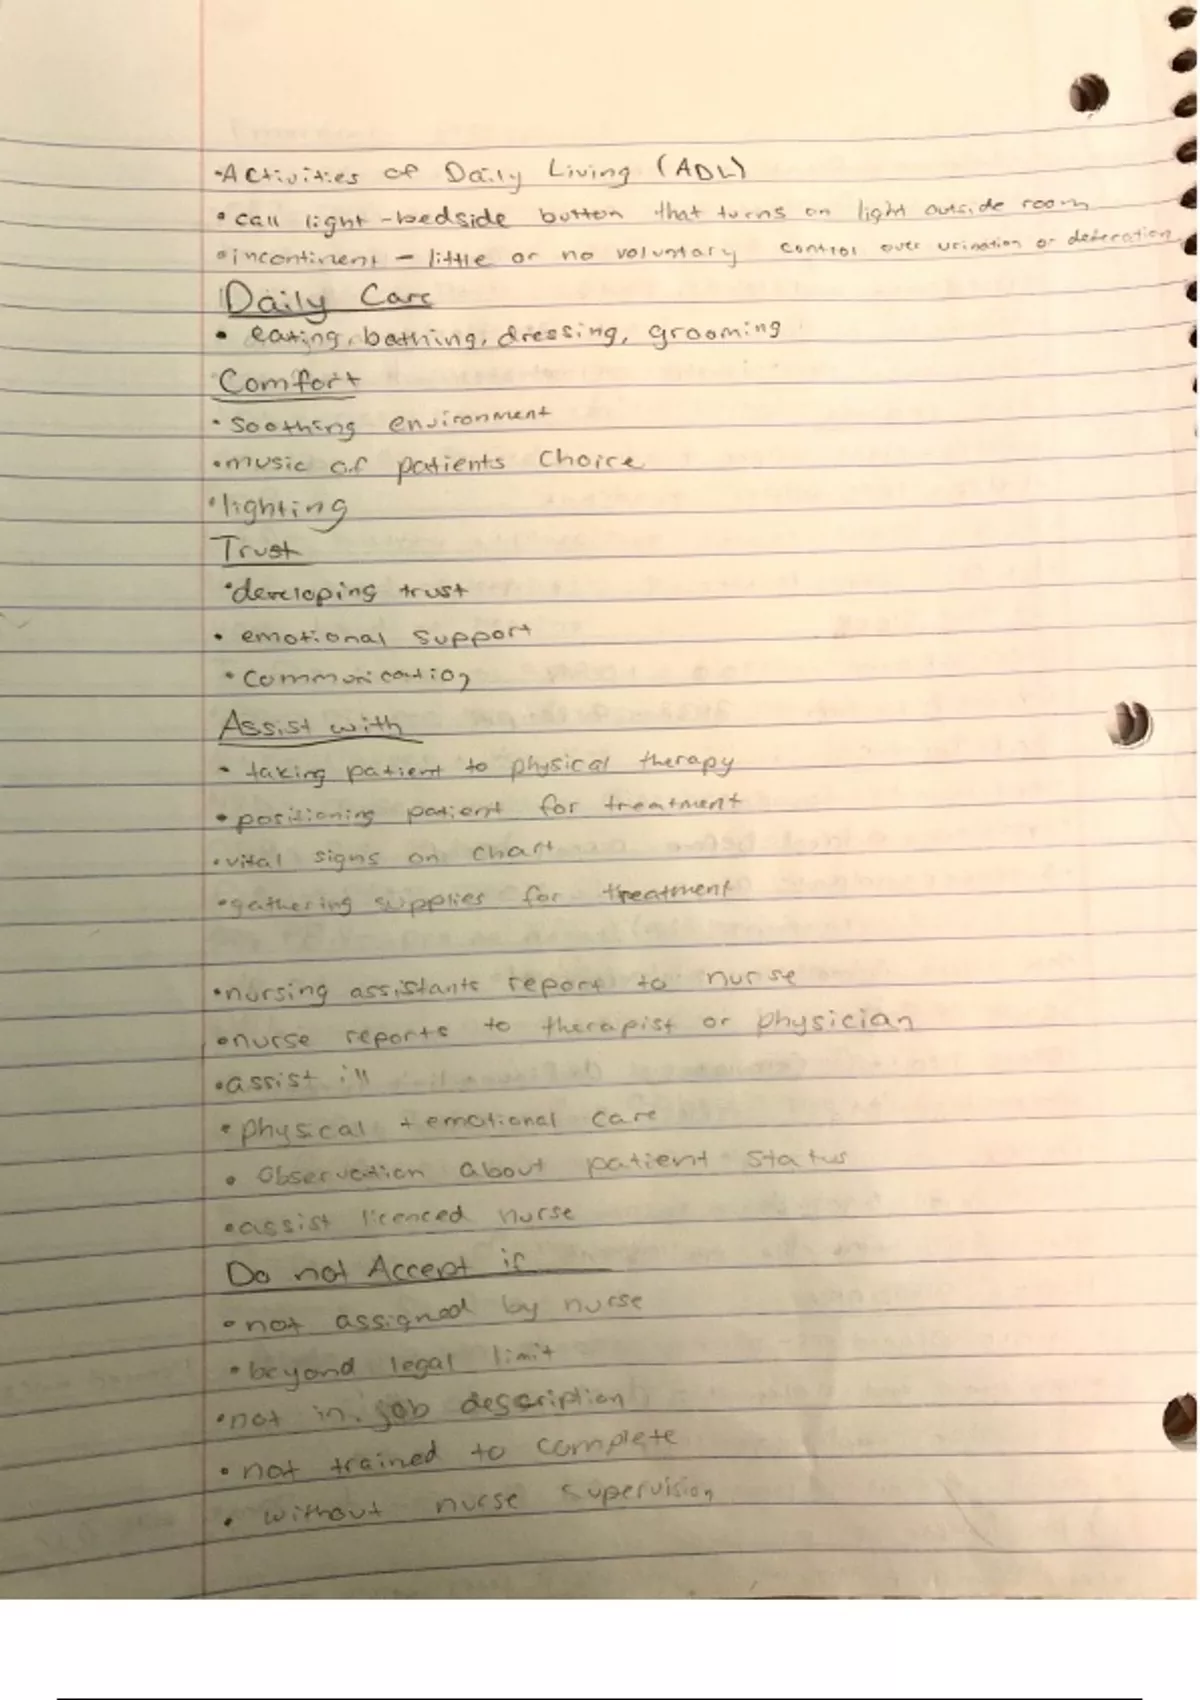 •Activities of Daily Living (ADL)
• call light - bedside button that turns on light outside room
• incontinent - little or no voluntary control over urination or defecation
Daily Care
• eating, bathing, dressing, grooming
Comfort
• Soothing environment
•music of patients choice
•lighting
Trust
•developing trust
• emotional support
• Communication
Assist with
• taking patient to physical therapy
• positioning patient for treatment
•vital signs on chart
•gathering supplies for treatment
•nursing assistants report to nurse
•nurse reports to therapist or physician
•assist ill
•physical + emotional care
• Observation about patient status
•assist licenced nurse
Do not Accept if
• not assigned by nurse
• beyond legal limit
•not in job description
• not trained to complete
• without nurse supervision